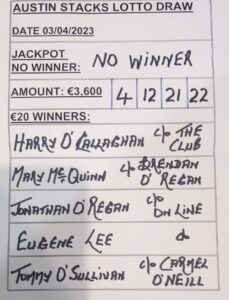 AUSTIN STACKS LOTTO DRAW
DATE 03/04/2023
JACKPOT
NO WINNER: NO WINNER
AMOUNT: €3,600 4 12 21 22
€20 WINNERS:
HARRY O'CALLAGHAN c/o THE CLUB
MARY MCQUINN c/o BRENDAN O'REGAN
JONATHAN O'REGAN c/o ON LINE
EUGENE LEE c/o
TOMMY O'SULLIVAN c/o CARMEL O'NEILL